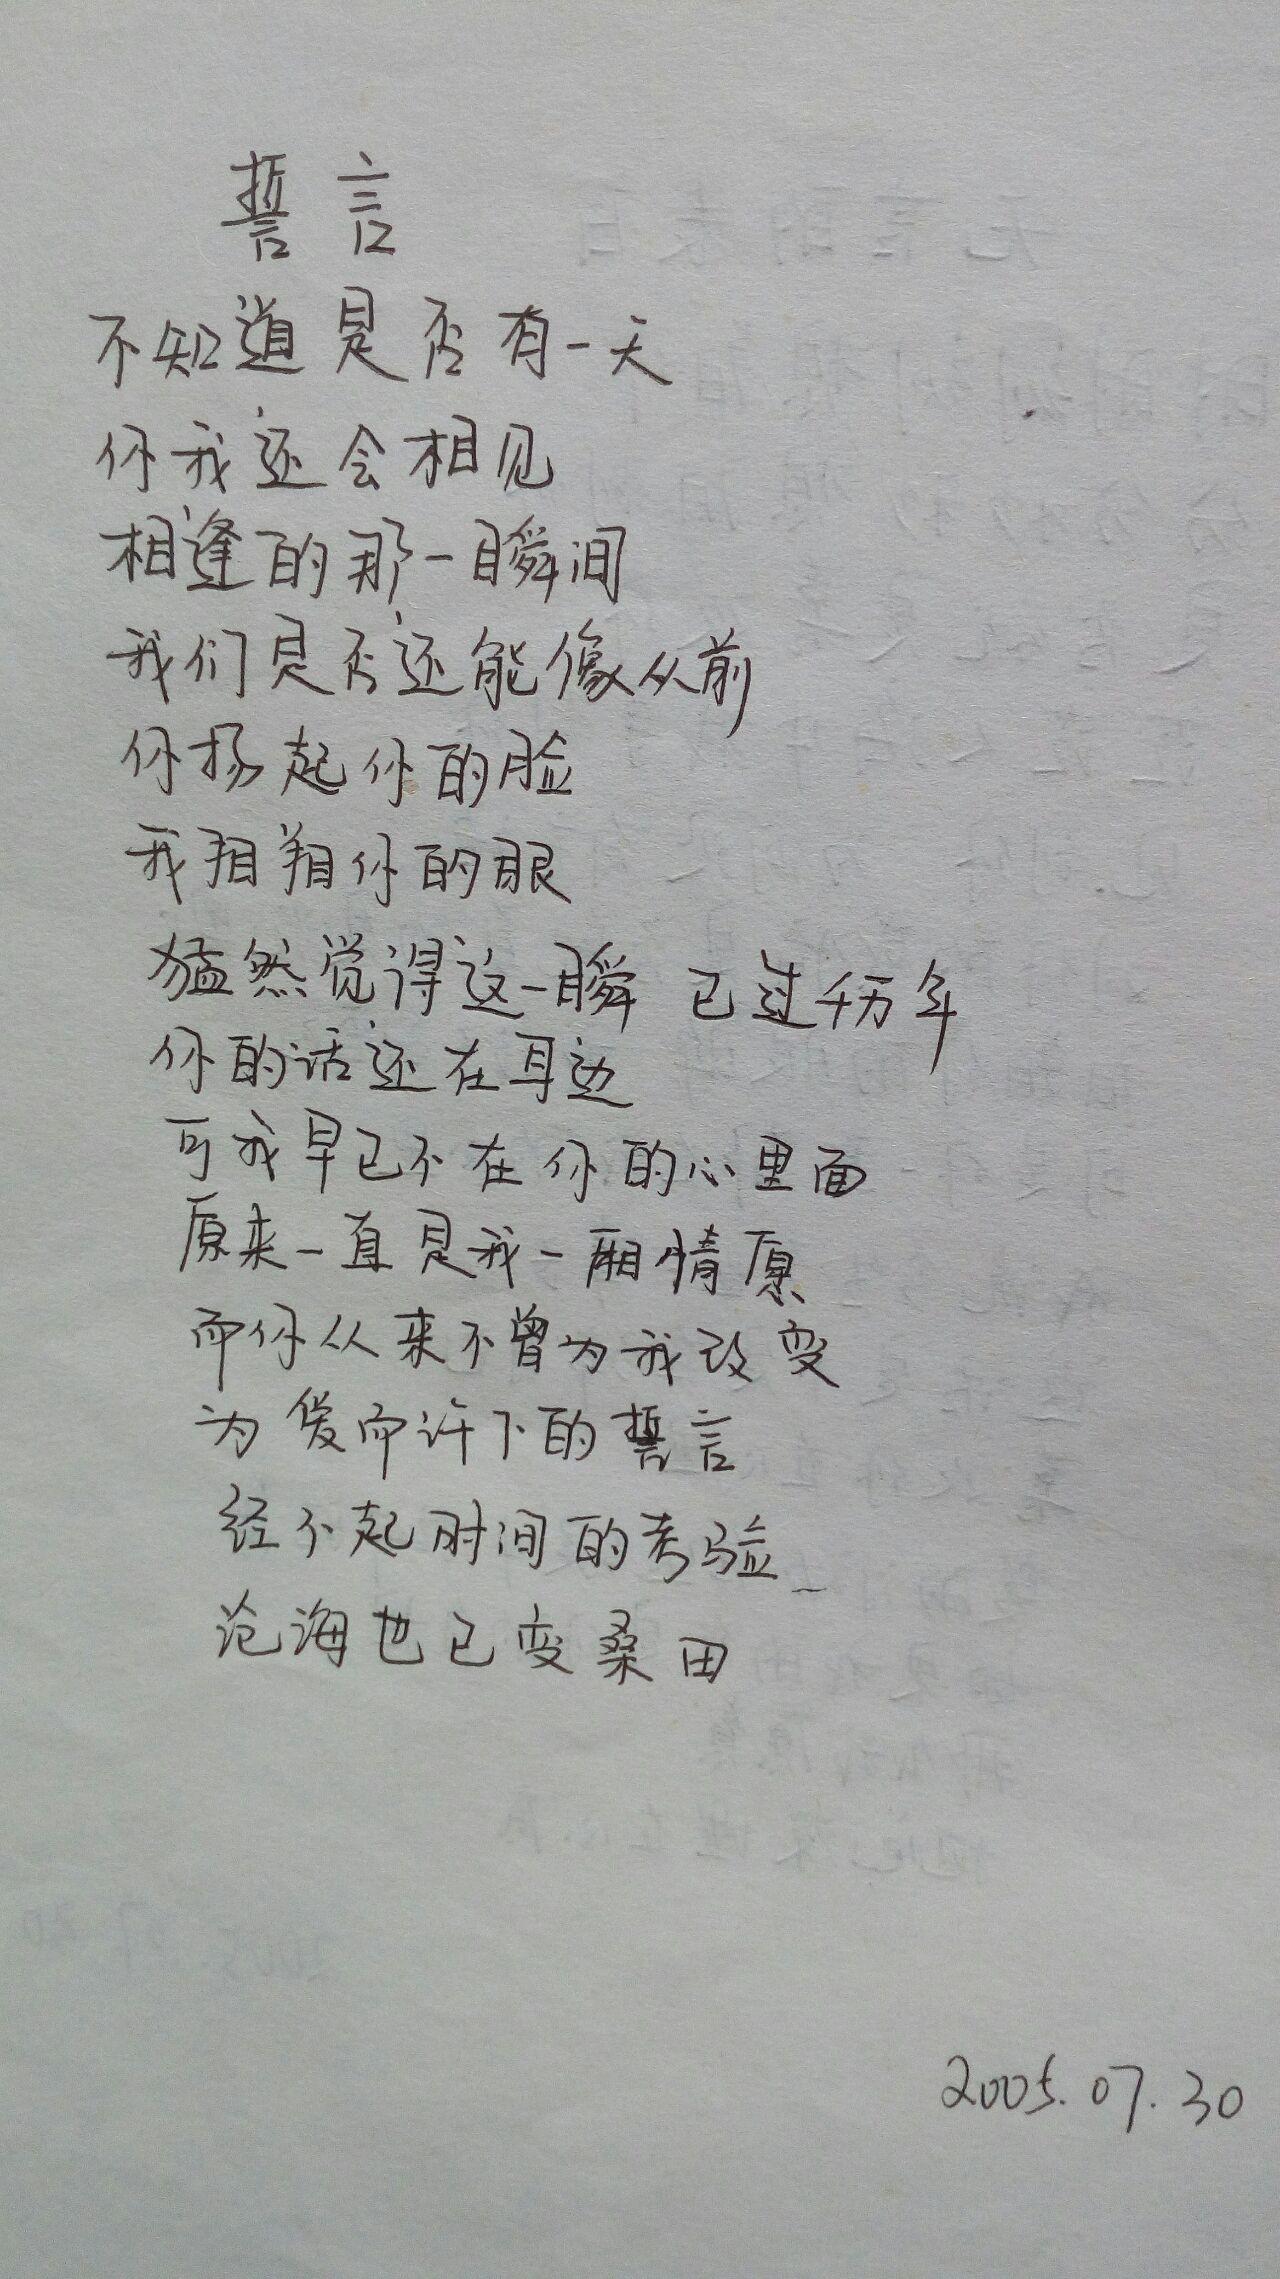 誓言
不知道是否有一天
你我还会相见
相逢的那一瞬间
我们是否还能像从前
你扬起你的脸
我你的眼
猛然觉得这一瞬 已过千万年
你的话还在耳边
可我早已不在你的心里面
原来一直是我一厢情愿
而你从来不曾为我改变
为爱而许下的誓言
经不起时间的考验
沧海也已变桑田
2005.07.30